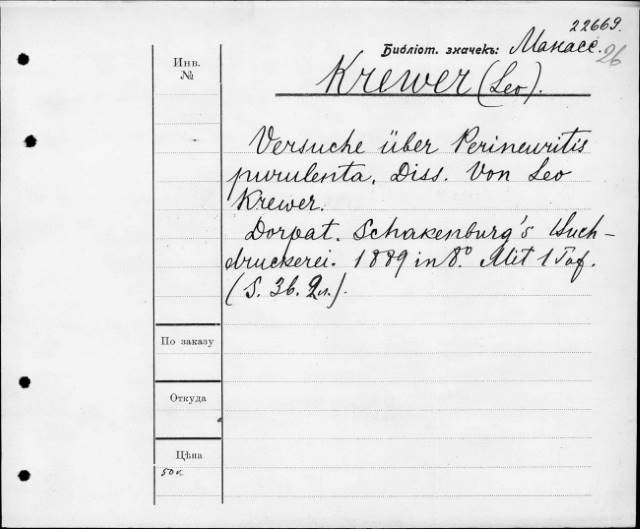 22669.
Библіот. значекъ: Манасс.
26
Инв.
№
Krewer (Leo).
Versuche über Perineuritis
purulenta. Diss. Von Leo
Krewer.
Dorpat. Schakenburg's Buch-
druckerei. 1889 in 8°. Mit 1 Taf.
(S. 36. 2л.).
По заказу
Откуда
Цѣна
50к